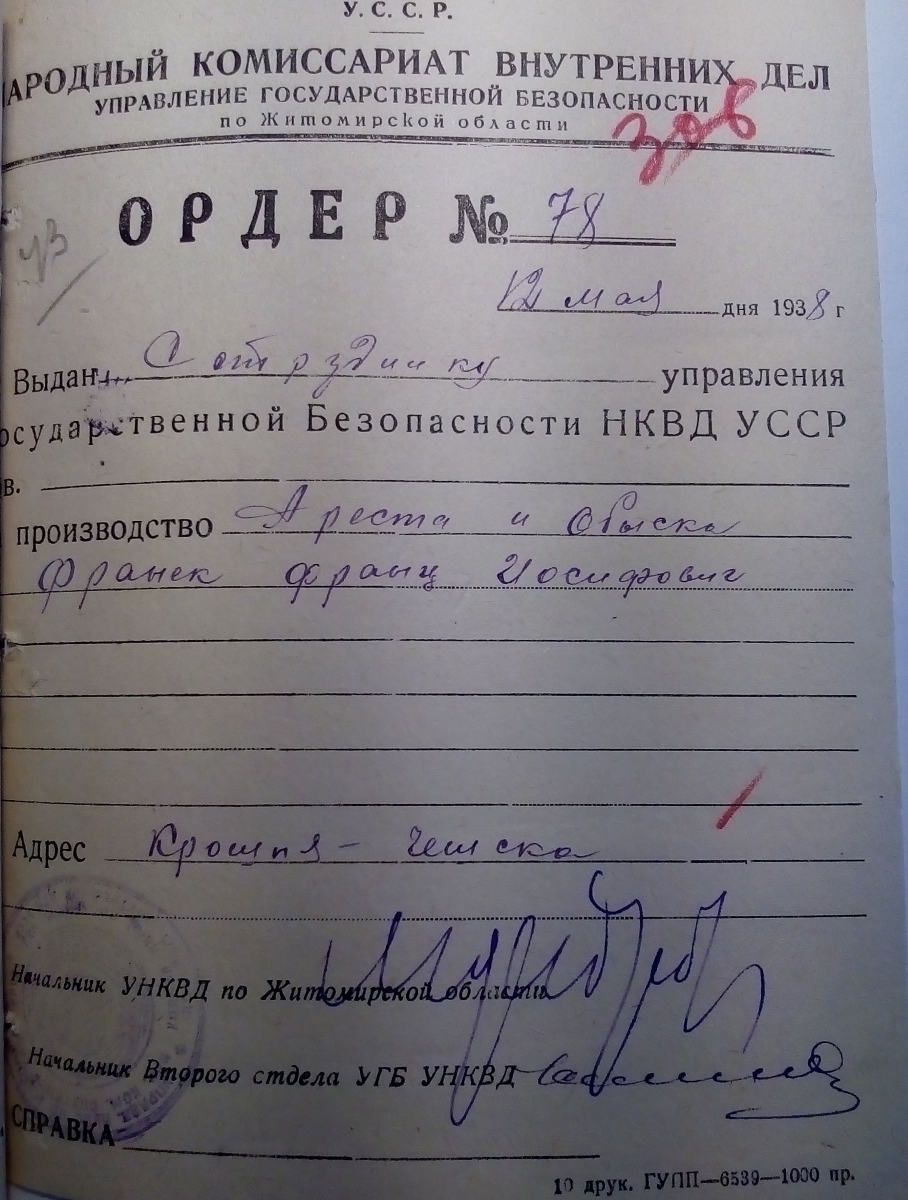 У. С. С. Р.
НАРОДНЫЙ КОМИССАРИАТ ВНУТРЕННИХ ДЕЛ
УПРАВЛЕНИЕ ГОСУДАРСТВЕННОЙ БЕЗОПАСНОСТИ
по Житомирской области
ОРДЕР № 78
12 мая дня 1938 г
Выдан Сотруднику управления
осударственной Безопасности НКВД УССР
в.
производство Ареста и Обыска
Франек Франц Иосифович
Адрес Крошня - Чешска
Начальник УНКВД по Житомирской области
Начальник Второго отдела УГБ УНКВД
СПРАВКА
10 друк. ГУПП—6539—1000 пр.